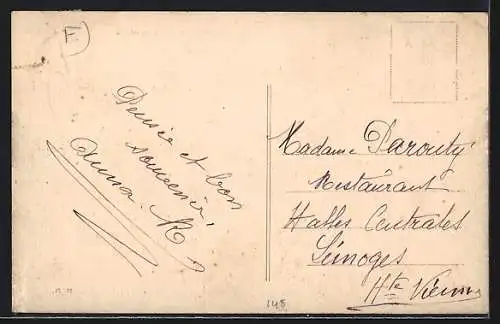 Pensée et bon
souvenir,
Anna. R
Madame Darouty
Restaurant
Halles Centrales
Limoges
Hte Vienne
148